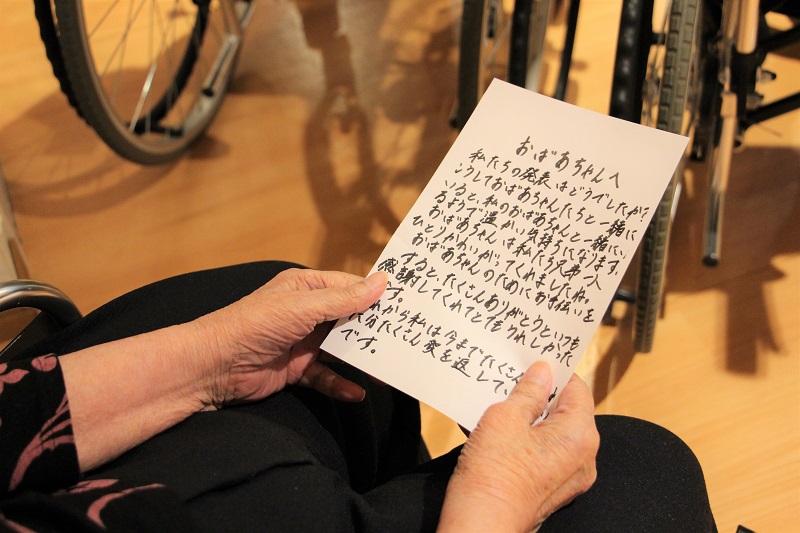 おばあちゃんへ
私たちの発表はどうでしたか?
こうしておばあちゃんたちと一緒に
いると、私のおばあちゃんと一緒にい
るようで温かい気持ちになります。
おばあちゃんは私たち兄弟一人
ひとりかわいがってくれましたね。
おばあちゃんのためにお手伝いを
すると、たくさんありがとうといつも
感謝してくれてとてもうれしかった
です。
これから私は今までたくさん
た分たくさん愛を返して、
です。